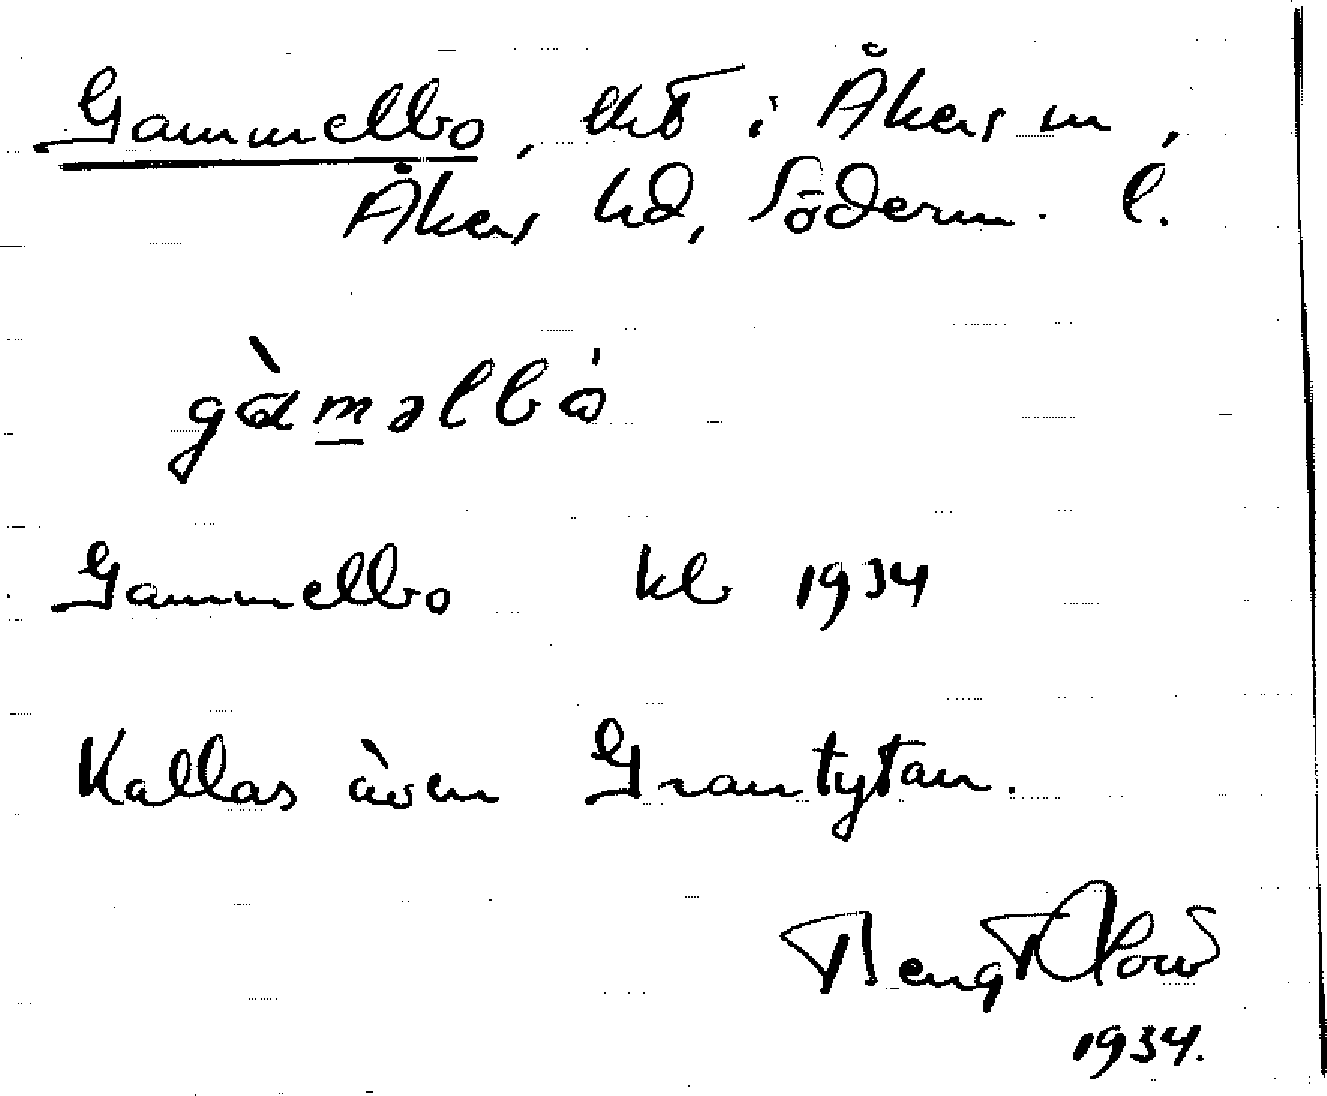 Gammelbo, tht i Åkers sn,
Åkers hd, Söderm. l.
gàm̲əlbó
Gammelbo kl 1934
Kallas även Grantytan.
Bengt
1934.